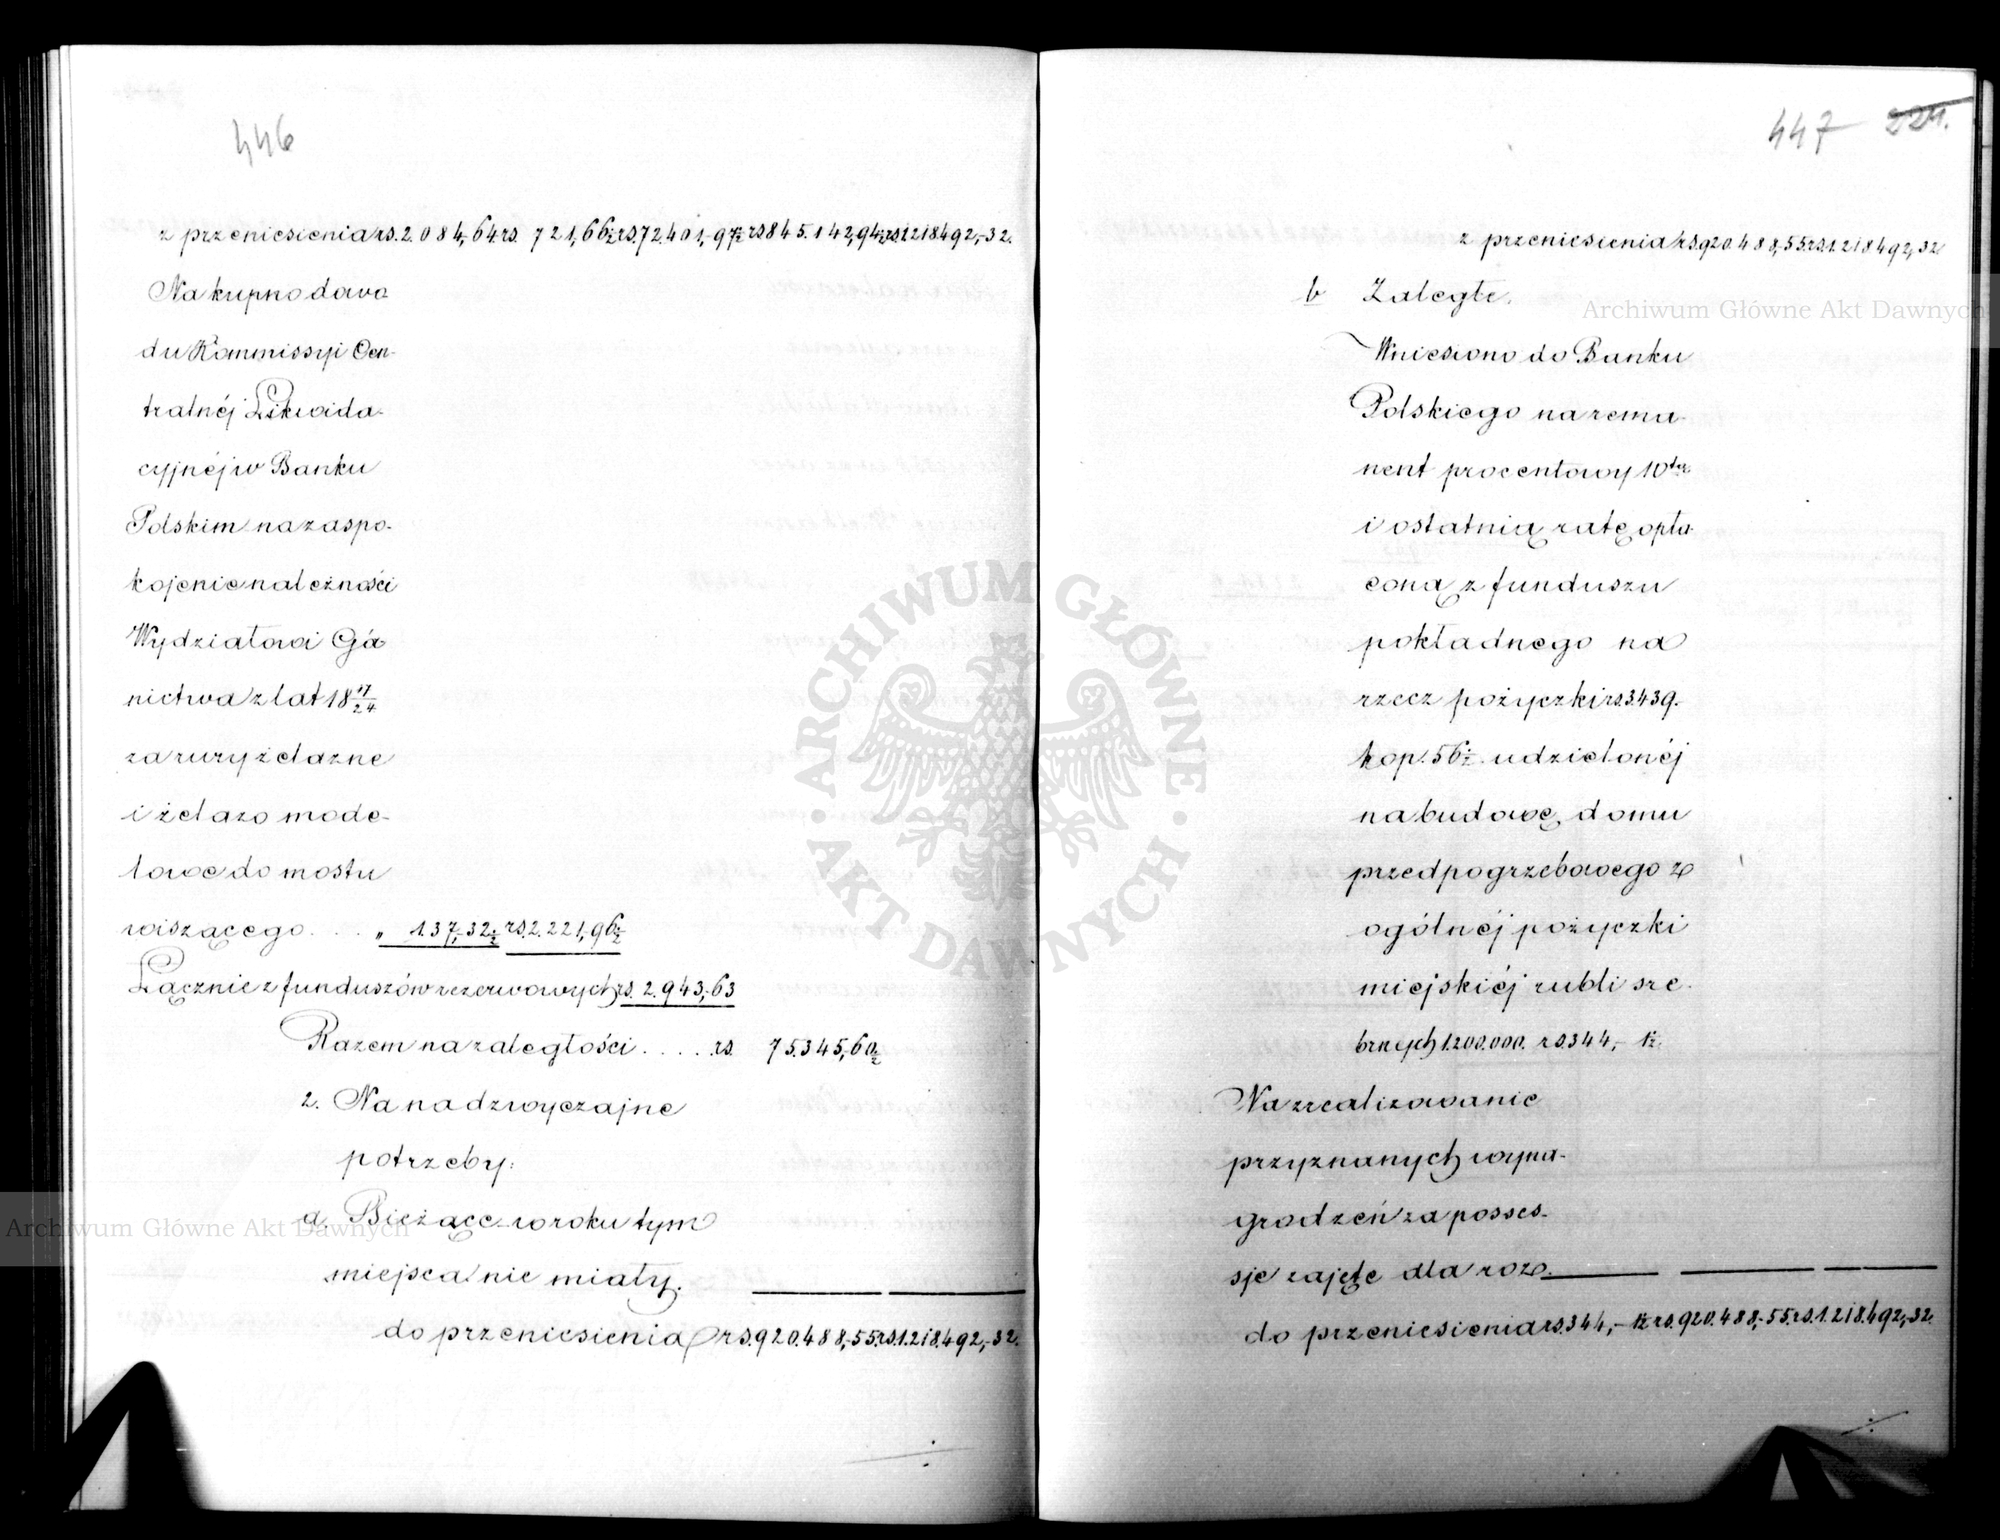 446
z przeniesienia rs. 2.084,-64 rs. 721,66½ rs. 72.401,-97½ rs 845.142,94½ rs 1.218.492,-32.
Na kupno dowo
du Kommissyi Cen-
tralnéj Likwida-
cyjnéj w Banku
Polskim na zaspo-
kojenie należności
Wydziałowi Gó
nictwa z lat 18 17/24
za rury żelazne
i żelazo mode-
lowe do mostu
wiszącego . . . „ 137,-32½ rs. 2.221,-96½
Łącznie z funduszów rezerwowych rs. 2.943,-63
Razem na zaległości . . . . . rs. 75.345,-60½
2. Na nadzwyczajne
potrzeby:
a. Bieżące w roku tym
miejsca nie miały.
do przeniesienia rs. 920.488,-55 rs. 1.218.492,-32.
447 224.
z przeniesienia rs. 920.488,-55 rs. 1.218.492,-32
b Zaległe.
Wniesiono do Banku
Polskiego na rema-
nent procentowy 10tą
i ostatnią ratę opła-
coną z funduszu
pokładnego na
rzecz pożyczki rs. 3.439.
kop. 56½ udzielonéj
na budowę domu
przedpogrzebowego z
ogólnéj pożyczki
miejskiéj rubli sre-
brnych 1.200.000. rs. 344,- 1½.
Na zrealizowanie
przyznanych wyna-
grodzeń za posses-
sje zajęte dla roz.
do przeniesienia rs. 344,- 1½ rs. 920.488,-55. rs. 1.218.492,-32.
Archiwum Główne Akt Dawnych
Archiwum Główne Akt Dawnych
ARCHIWUM GŁÓWNE · AKT DAWNYCH ·